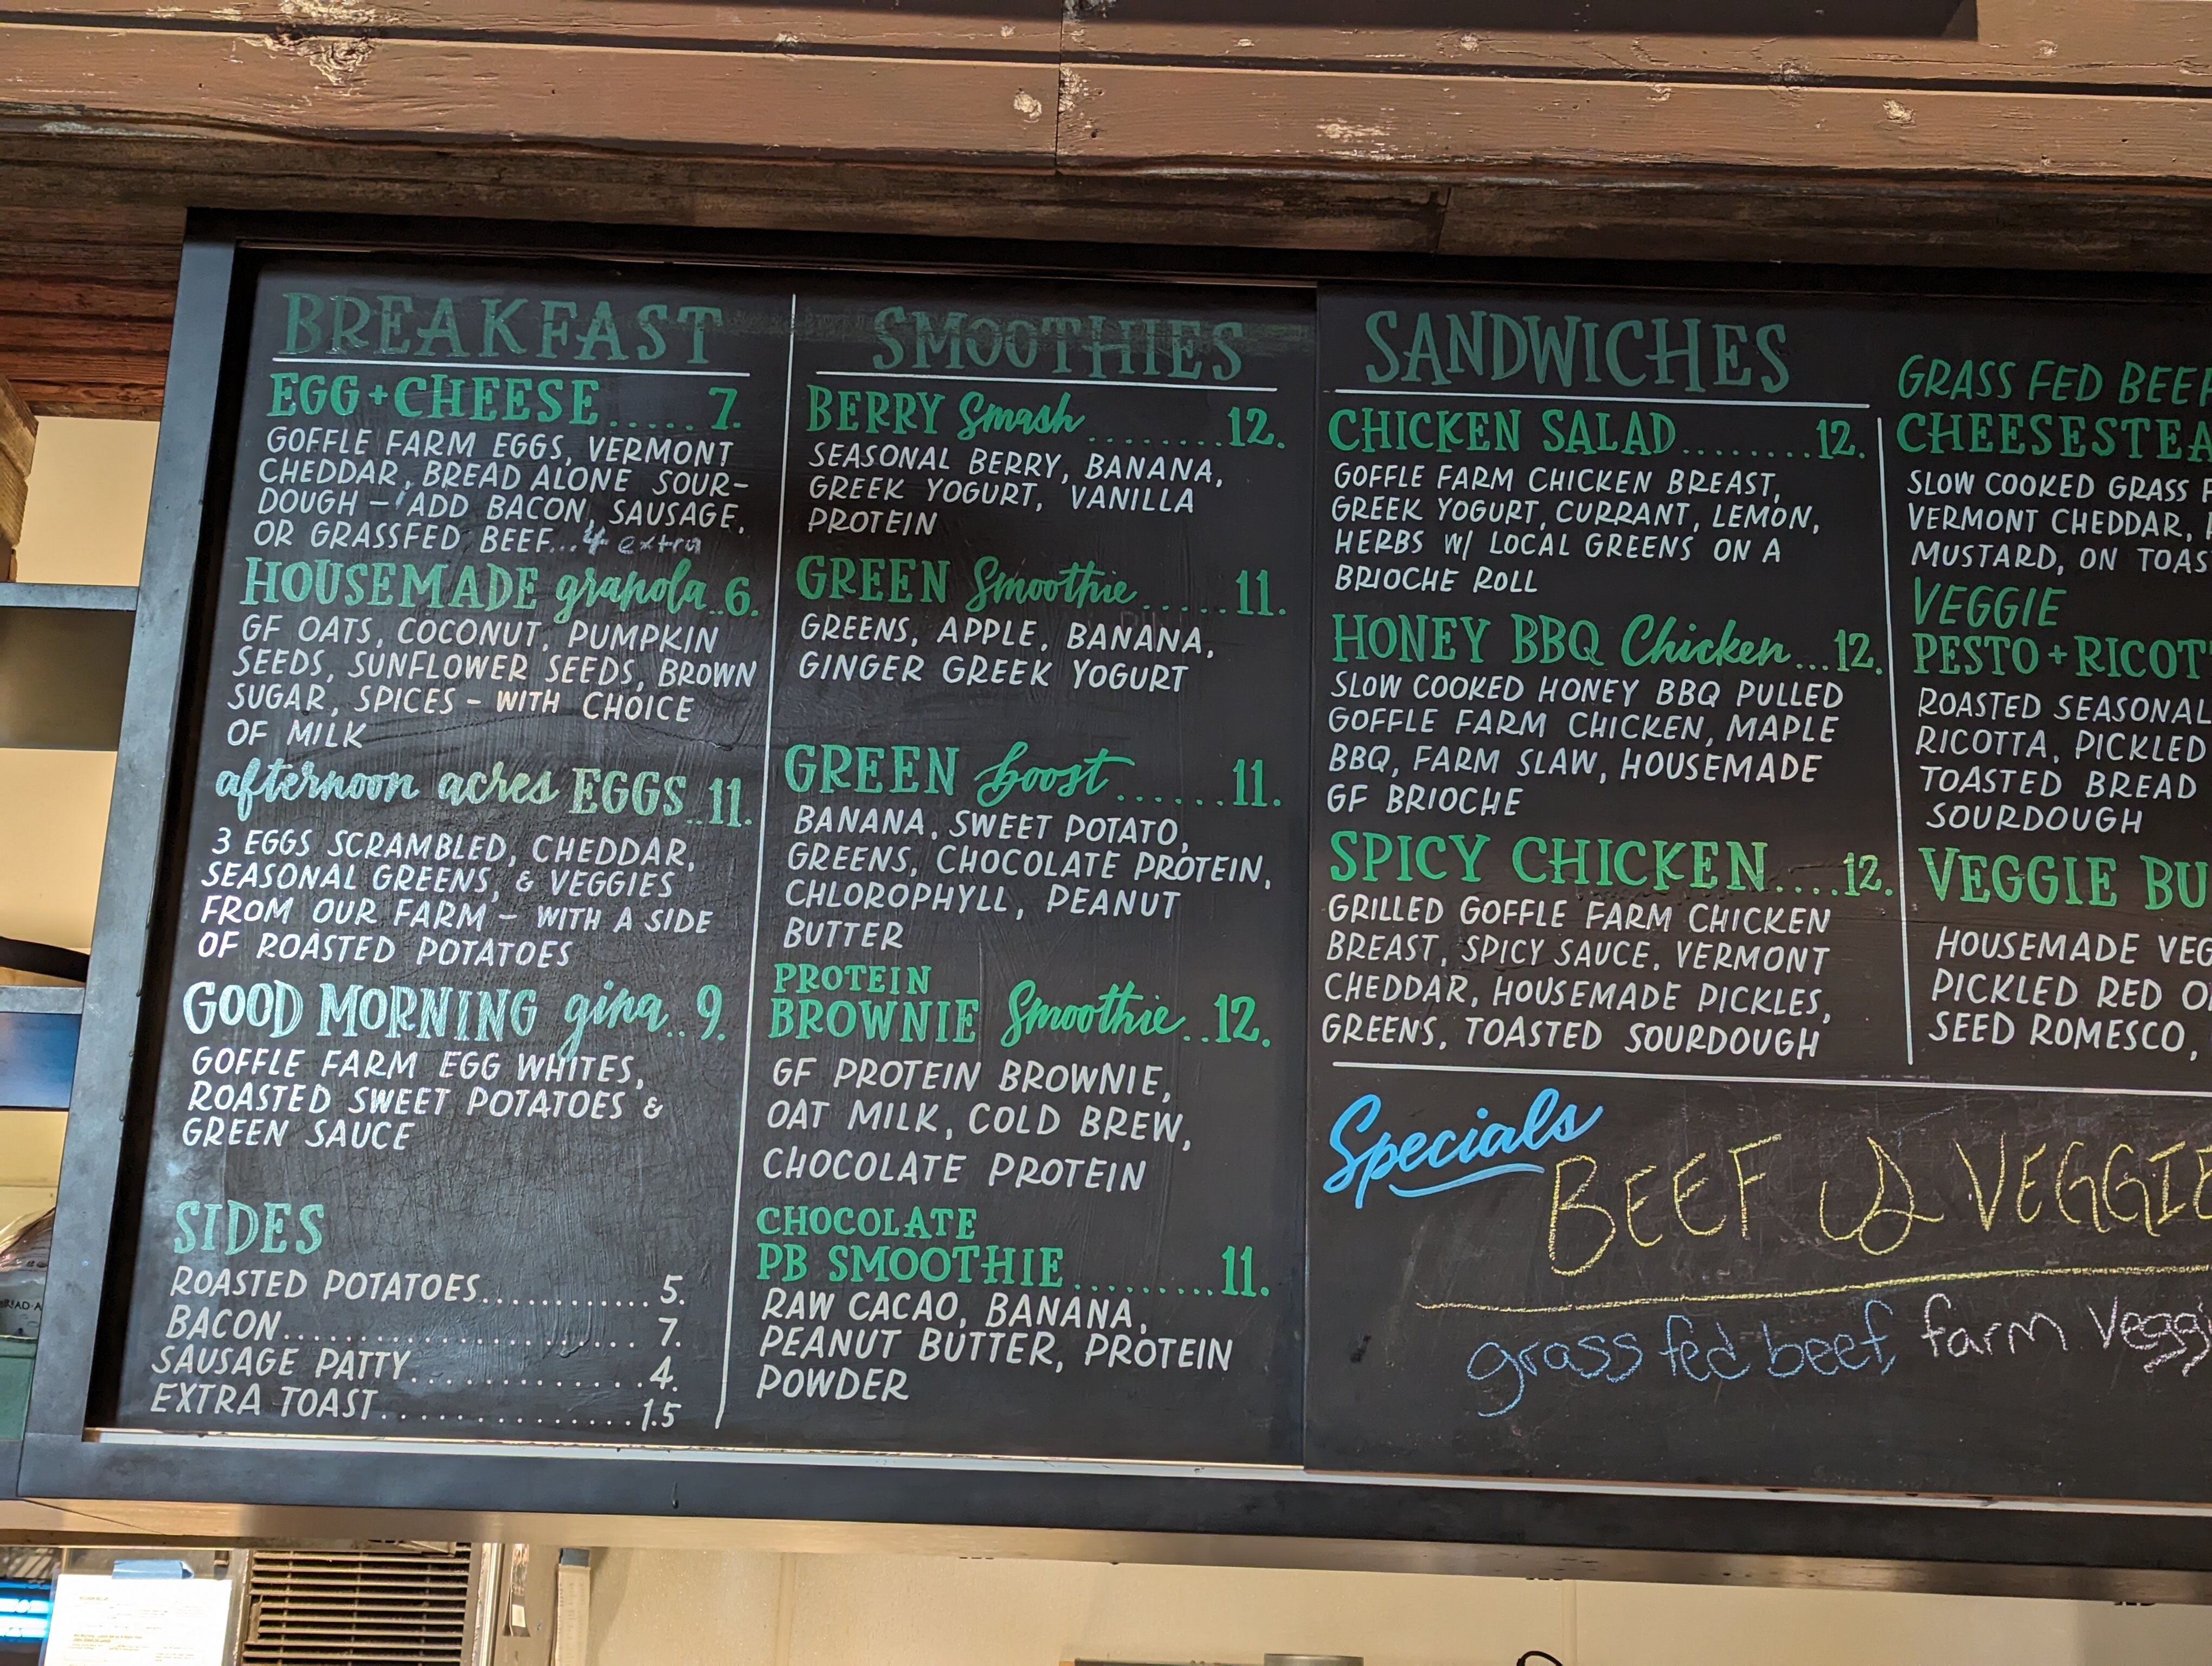 BREAKFAST
EGG+CHEESE..... 7.
GOFFLE FARM EGGS, VERMONT
CHEDDAR, BREAD ALONE SOUR-
DOUGH - ADD BACON, SAUSAGE,
OR GRASSFED BEEF... 4 extra
HOUSEMADE granola..6.
GF OATS, COCONUT, PUMPKIN
SEEDS, SUNFLOWER SEEDS, BROWN
SUGAR, SPICES - WITH CHOICE
OF MILK
afternoon acres EGGS..11.
3 EGGS SCRAMBLED, CHEDDAR,
SEASONAL GREENS, & VEGGIES
FROM OUR FARM - WITH A SIDE
OF ROASTED POTATOES
GOOD MORNING gina..9.
GOFFLE FARM EGG WHITES,
ROASTED SWEET POTATOES &
GREEN SAUCE
SIDES
ROASTED POTATOES............5.
BACON......................7.
SAUSAGE PATTY..............4.
EXTRA TOAST................1.5
SMOOTHIES
BERRY Smash........12.
SEASONAL BERRY, BANANA,
GREEK YOGURT, VANILLA
PROTEIN
GREEN Smoothie.....11.
GREENS, APPLE, BANANA,
GINGER GREEK YOGURT
GREEN boost......11.
BANANA, SWEET POTATO,
GREENS, CHOCOLATE PROTEIN,
CHLOROPHYLL, PEANUT
BUTTER
PROTEIN
BROWNIE Smoothie..12.
GF PROTEIN BROWNIE,
OAT MILK, COLD BREW,
CHOCOLATE PROTEIN
CHOCOLATE
PB SMOOTHIE.........11.
RAW CACAO, BANANA,
PEANUT BUTTER, PROTEIN
POWDER
SANDWICHES
CHICKEN SALAD........12.
GOFFLE FARM CHICKEN BREAST,
GREEK YOGURT, CURRANT, LEMON,
HERBS W/ LOCAL GREENS ON A
BRIOCHE ROLL
HONEY BBQ Chicken...12.
SLOW COOKED HONEY BBQ PULLED
GOFFLE FARM CHICKEN, MAPLE
BBQ, FARM SLAW, HOUSEMADE
GF BRIOCHE
SPICY CHICKEN....12.
GRILLED GOFFLE FARM CHICKEN
BREAST, SPICY SAUCE, VERMONT
CHEDDAR, HOUSEMADE PICKLES,
GREENS, TOASTED SOURDOUGH
GRASS FED BEEF
CHEESESTEA
SLOW COOKED GRASS F
VERMONT CHEDDAR,
MUSTARD, ON TOAS
VEGGIE
PESTO+RICOT
ROASTED SEASONAL
RICOTTA, PICKLED
TOASTED BREAD
SOURDOUGH
VEGGIE BU
HOUSEMADE VEG
PICKLED RED O
SEED ROMESCO,
Specials
BEEF & VEGGIE
grass fed beef, farm veggi